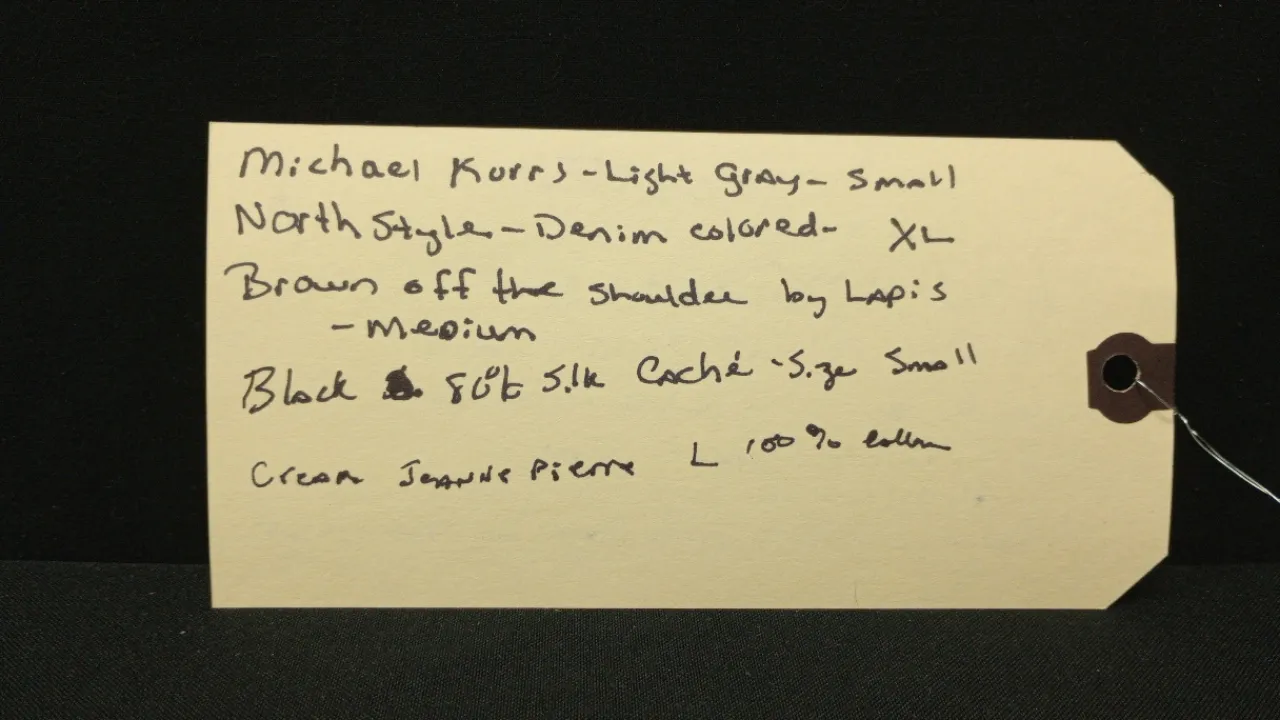 Michael Korrs - Light Gray - Small
North Style - Denim colored - XL
Brown off the shoulder by Lapis
- Medium
Black 80% Silk Caché - Size Small
Cream Jeanne Pierre L 100% Cotton